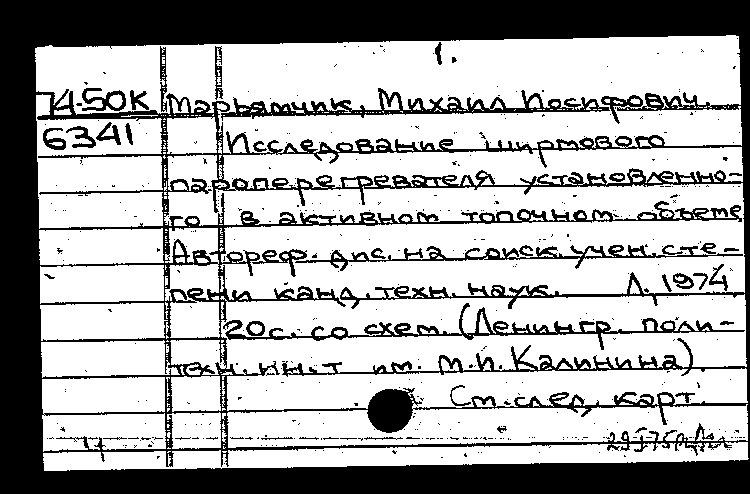 1.
74-50К Марьямчик, Михаил Иосифович.
6341 Исследование ширмового
пароперегревателя установленно-
го в активном топочном объеме
Автореф. дис. на соиск. учен. сте-
пени канд. техн. наук. Л., 1974.
20с. со схем. (Ленингр. поли-
техн. ин-т им. М.И. Калинина).
См. след. карт.